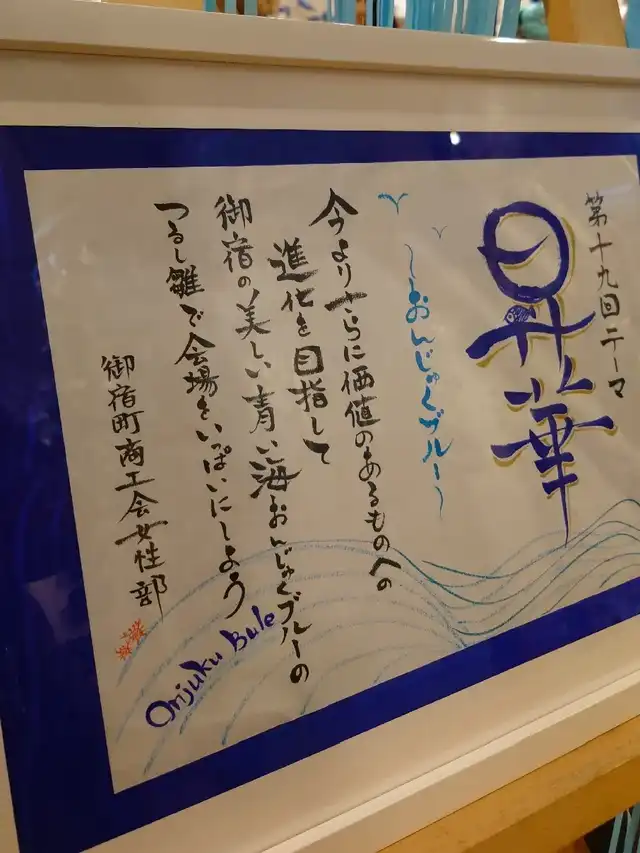 第十九回テーマ
昇華
～おんじゅくブルー～
今よりさらに価値のあるものへの
進化を目指して
御宿の美しい青い海おんじゅくブルーの
つるし雛で会場をいっぱいにしよう
御宿町商工会女性部
Onjuku Bule